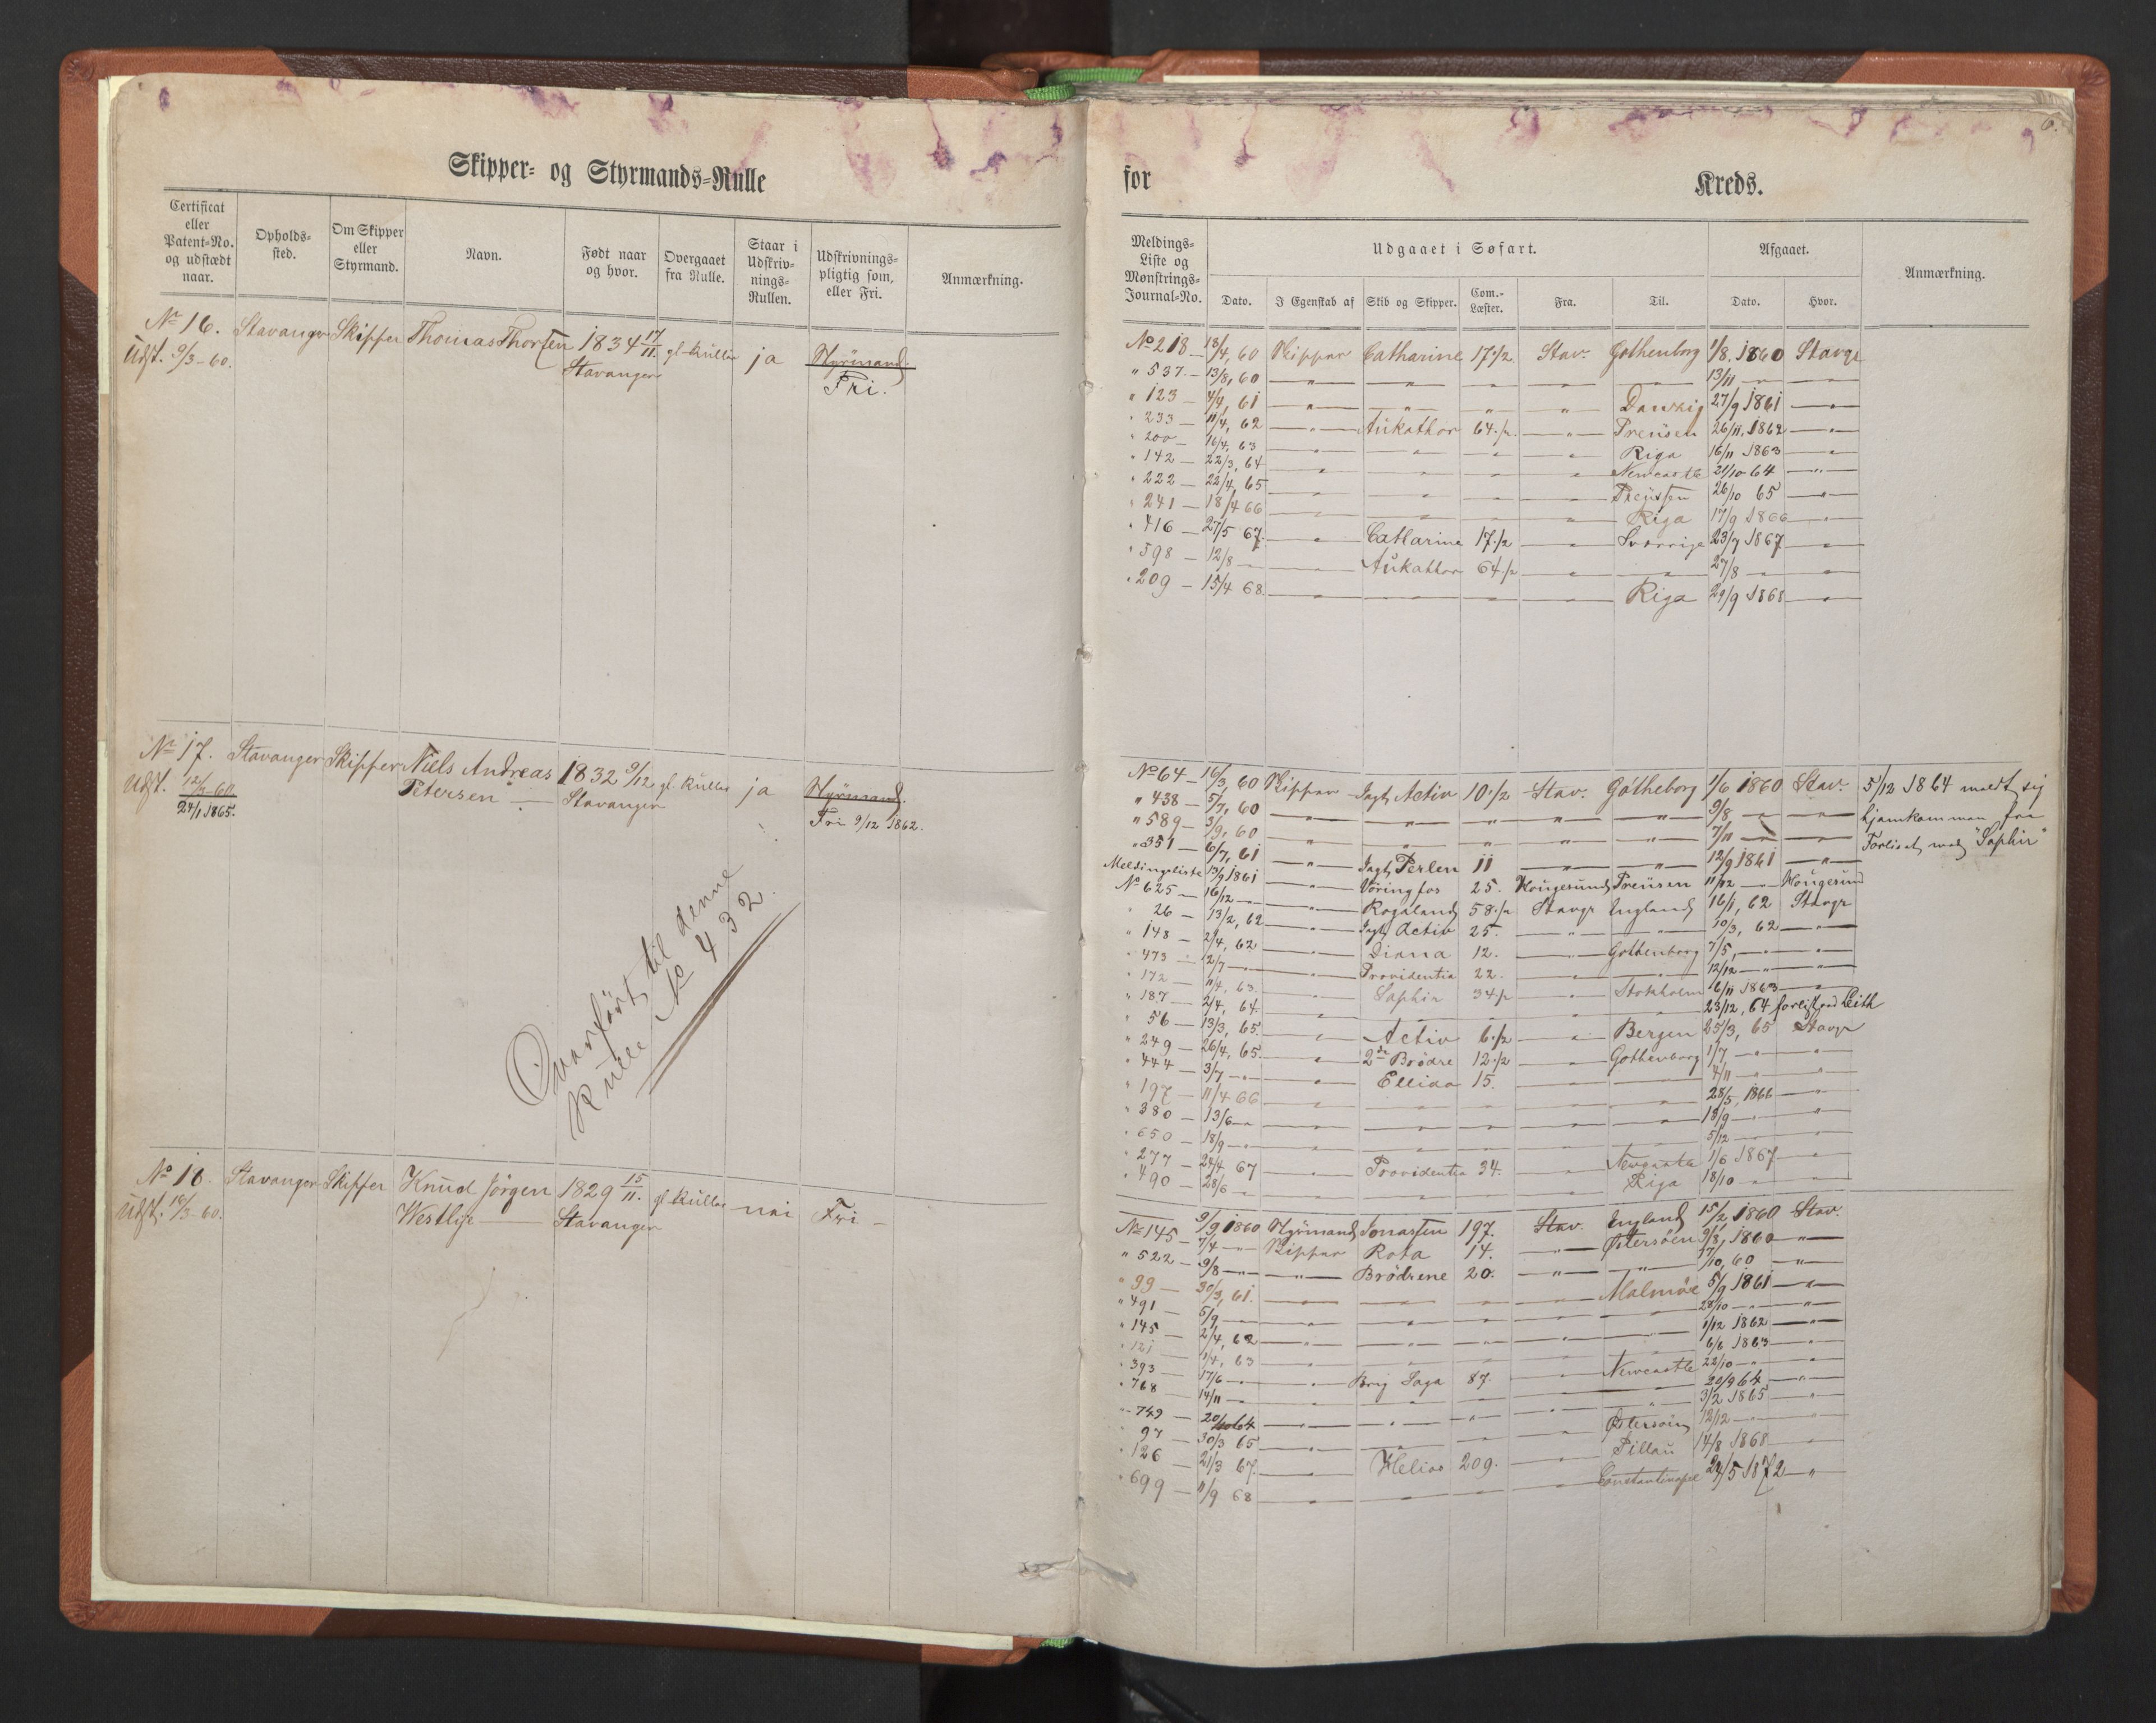 Skipper- og Styrmands-Rulle
Certificat eller Patent-No. og udstædt naar.
Opholds-sted.
Om Skipper eller Styrmand.
Navn.
Født naar og hvor.
Overgaaet fra Rulle.
Staar i Udskriv-nings-Rullen.
Udskrivnings-pligtig som, eller Fri.
Anmærkning.
No 16. Stavanger Skipper Thomas Thorsen 1834 17/11. gl. Rulle ja Styrmand
Udst. 9/3-60. Stavanger Fri.
No 17. Stavanger Skipper Niels Andreas 1832 9/12 gl. Rulle ja Styrmand.
Udst. 12/3-60 Petersen Stavanger Fri 9/12 1862.
24/1 1865.
Overført til denne
Rulle No 432.
Stavanger Skipper Knud Jörgen 1829 15/11. gl. Rulle nei Fri
Udst. Westlye Stavanger
for Kreds.
6.
Meldings-Liste og Mønstrings-Journal-No.
Udgaaet i Søfart.
Afgaaet.
Anmærkning.
Dato.
I Egenskab af
Skib og Skipper.
Com.-Læster.
Fra.
Til.
Dato.
Hvor.
No 218 13/4, 60 Skipper Catharine 17 1/2 Stav. Gothenborg 1/8. 1860 Stavgr
" 537 - 13/8, 60 — " — — " — " " — 13/11 — " —
" 123 - 4/4, 61 — " — — " — " " Danzig 27/9 1861 — " —
" 233 - 11/4, 62 — " — Aukathor 64 1/2 — " — Preusen 26/11. 1862 — " —
" 200 - 16/4, 63 — " — " — " — " Riga 16/11 1863 — " —
" 142 - 22/3, 64 — " — " — " — " Newcastle 21/10 64 — " —
" 222 - 22/4, 65 — " — " — " — " Preussen 26/10 65 — " —
" 241 - 18/4 66 — " — " — " — " Riga 17/9 1866 — " —
" 416 - 27/5 67. — " — Catharine 17 1/2 — " — Sverrige 23/7 1867 — " —
" 598 - 12/8 — — " — Aukathor 64 1/2 — " — " 27/8 — " — " —
" 209 - 15/4 68. — " — " — " — " Riga 29/9 1868 — " —
No 64 - 16/3, 60 Skipper Jagt Activ 10 1/2 Stav. Götheborg 1/6 1860 Stav. 5/12 1864 meldt sig
" 438 - 5/7, 60 — " — — " — " " " 9/8 — " — hjemkommen fra
" 589 - 3/9, 60 — " — — " — " " " 7/11 — " — Forliset med "Saphir"
" 351 - 6/7, 61 — " — Jagt Perlen 11 " " 12/9 1861 — " —
Meldingsliste 13/9 1861 — " — Vöringfos 25. Hougesund Preusen 11/12 — Hougesund
No 625 - 16/12 — " — Rogaland 58 1/2 Stavgr England 16/1, 62 Stavgr
" 26 - 13/2, 62 — " — Jagt Activ 25. " " 10/3, 62 — " —
" 148 - 2/4, 62 — " — Diana 12. " Gothenborg 7/5, — " —
" 473 - 12/7 — " — Providentia 22. " " 12/12 — " —
" 172 - 11/4, 63. — " — Saphir 34 1/2 " Stokholm 6/11 1863 — " —
" 187 - 2/4, 64. — " 23/12, 64 forlist ved Leith
" 56 - 13/3, 65. — " — Activ 6 1/2 " Bergen 25/3, 65 Stavgr
" 249 - 26/4, 65. — " — 2de Brödre 12 1/2 " Gothenborg 1/7 — " —
" 444 - 3/7 — " — Ellida 15. — " — 4/11 — " —
" 197 - 11/4 66 — " — " — " — " 28/5, 1866 — " —
" 380 - 13/6 — " — " — " — " 18/9 — " —
" 650 - 18/9 — " — " — " — " 5/12 — " —
" 277 - 24/4 67 — " — Providentia 34. " 1/6 1867 — " —
" 490 - 28/6 — " — " — " — Riga 18/10 — " —
No 145 - 1860 Styrmand Jonassen 197. Stav. England 15/2 1860 Stav.
7/4 — " — Skipper Rota 14. — " — Östersöen 9/8, 1860 — " —
" 522 - 9/8 — " — Brödrene 20. — " — " /10, 60 — " —
" 99 - 30/3, 61. — " — " — " — " Malmöe 5/9 1861 — " —
" 491 - 5/9 — " — " — " — " — 28/10 — " —
" 145 - 2/4, 62 — " — " — " — " — 1/12 1862 — " —
" 121 - 1/4, 63 — " — " — " — " — 6/6 1863 — " —
" 393 - 17/6 — " — Brig Saga 87. — " — Newcastle 22/10 — " —
" 768 - 14/11 — " — " — " — " — 20/9 64 — " —
" 749 - 20/10 64 — " — " — " — " — 3/2 1865 — " —
" 97 - 30/3 65 — " — " — " — Östersöen 12/12 — " —
" 126 - 21/3 67. — " — Helios 209. — " — Pillau 14/8 1868 — " —
" 699 - 11/9 68 — " — " — " — Constantinopel 24/5 1872 — " —